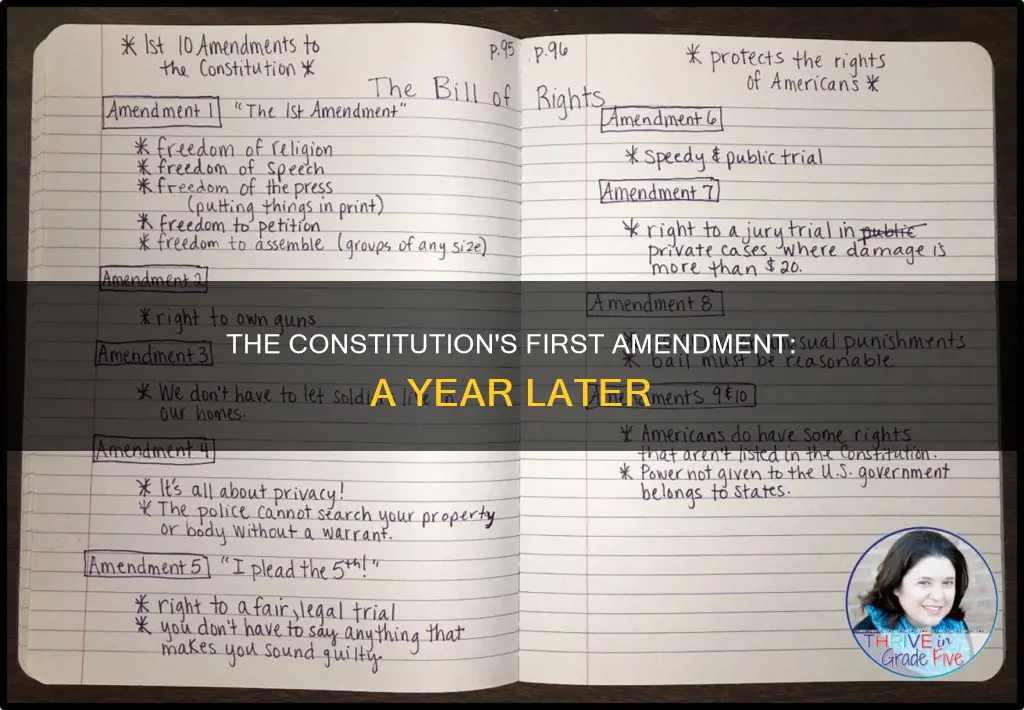 * 1st 10 Amendments to
the Constitution *
p.95
The Bill of
Amendment 1 "The 1st Amendment"
* freedom of religion
* freedom of speech
* freedom of the press
(putting things in print)
* freedom to petition
* freedom to assemble (groups of any size)
Amendment 2
* right to own guns
Amendment 3
* We don't have to let
our homes.
Amendment 4
* It's all about privacy!
* The police cannot search your property
or body without a warrant.
Amendment 5 "I plead the 5th!"
* right to a fair, legal trial
* you don't have to say anything that
makes you sound guilty
p.96
* protects the rights
of Americans *
Rights
Amendment 6
* speedy & public trial
Amendment 7
* right to a jury trial in public
private cases where damage is
more than $20.
Amendment 8
punishments
* bail must be reasonable
Amendments 9 & 10
* Americans do have some rights
that aren't listed in the Constitution.
* Power not given to the U.S. government
belongs to states.
THE CONSTITUTION'S FIRST AMENDMENT:
A YEAR LATER
THRIVE in
Grade Five